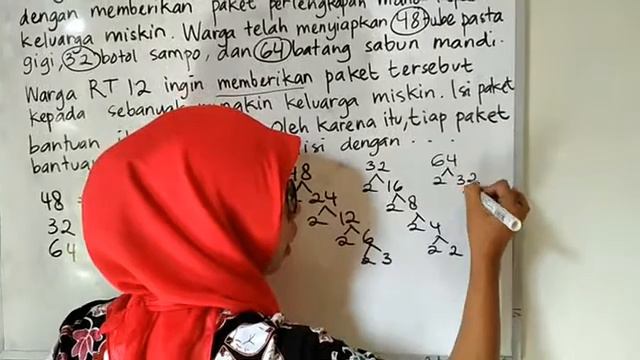 dengan memberikan paket perlengkapan mandi
keluarga miskin. Warga telah menyiapkan 48 tube pasta
gigi, 32 botol sampo, dan 64 batang sabun mandi.
Warga RT 12 ingin memberikan paket tersebut
kepada sebanyak mungkin keluarga miskin. Isi paket
bantuan Oleh karena itu, tiap paket
bantuan isi dengan . . .
48 = 48 32 64
2 24 2 16 2 32
32 2 12 2 8
64 2 6 2 4
2 3 2 2